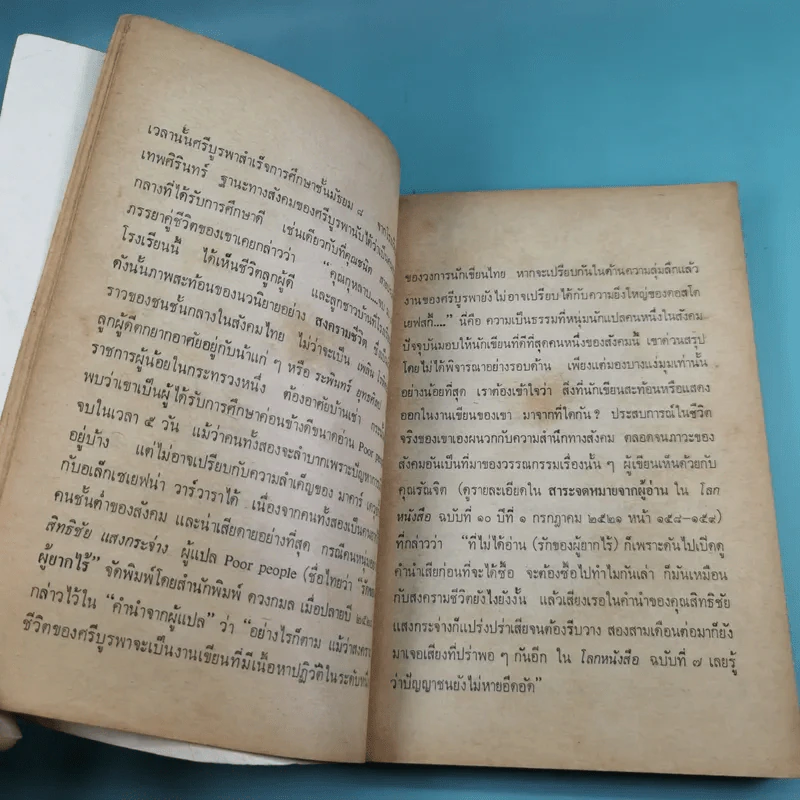 เวลานั้นศรีบูรพาสำเร็จการศึกษาชั้นมัธยม ๘
เทพศิรินทร์ ฐานะทางสังคมของศรีบูรพานับได้ว่าเป็นคน
กลางที่ได้รับการศึกษาดี เช่นเดียวกับที่คุณชนิด
ภรรยาคู่ชีวิตของเขาเคยกล่าวว่า “คุณกุหลาบ....
โรงเรียนนี้ ได้เห็นชีวิตลูกผู้ดี และลูกชาวบ้านที่
ดังนั้นภาพสะท้อนของนวนิยายอย่าง สงครามชีวิต
ราวของชนชั้นกลางในสังคมไทย ไม่ว่าจะเป็น เพลิน
ลูกผู้ดีตกยากอาศัยอยู่กับน้าแก่ ๆ หรือ ระพินทร์ ยุทธศิลป
ราชการผู้น้อยในกระทรวงหนึ่ง ต้องอาศัยบ้านเช่า
พบว่าเขาเป็นผู้ได้รับการศึกษาค่อนข้างดีขนาดอ่าน Poor people
จบในเวลา ๕ วัน แม้ว่าคนทั้งสองจะลำบากเพราะปัญหา
อยู่บ้าง แต่ไม่อาจเปรียบกับความลำเค็ญของ มาคาร์
กับอเล็กเซเยฟน่า วาร์วาราได้ เนื่องจากคนทั้งสองเป็น
คนชั้นต่ำของสังคม และน่าเสียดายอย่างที่สุด กรณีคนหนุ่ม
สิทธิชัย แสงกระจ่าง ผู้แปล Poor people (ชื่อไทยว่า “รักของ
ผู้ยากไร้” จัดพิมพ์โดยสำนักพิมพ์ ดวงกมล เมื่อปลายปี
กล่าวไว้ใน “คำนำจากผู้แปล” ว่า “อย่างไรก็ตาม แม้ว่าสงคราม
ชีวิตของศรีบูรพาจะเป็นงานเขียนที่มีเนื้อหาปฏิวัติในระดับ
ของวงการนักเขียนไทย หากจะเปรียบกันในด้านความลุ่มลึกแล้ว
งานของศรีบูรพายังไม่อาจเปรียบได้กับความยิ่งใหญ่ของดอสโต
เยฟสกี้....” นี่คือ ความเป็นธรรมที่หนุ่มนักแปลคนหนึ่งในสังคม
ปัจจุบันมอบให้นักเขียนที่ดีที่สุดคนหนึ่งของสังคมนี้ เขาด่วนสรุป
โดยไม่ได้พิจารณาอย่างรอบด้าน เพียงแต่มองบางแง่มุมเท่านั้น
อย่างน้อยที่สุด เราต้องเข้าใจว่า สิ่งที่นักเขียนสะท้อนหรือแสดง
ออกในงานเขียนของเขา มาจากที่ใดกัน? ประสบการณ์ในชีวิต
จริงของเขาเองผนวกกับความสำนึกทางสังคม ตลอดจนภาวะของ
สังคมอันเป็นที่มาของวรรณกรรมเรื่องนั้น ๆ ผู้เขียนเห็นด้วยกับ
คุณรัณจิต (ดูรายละเอียดใน สาระจดหมายจากผู้อ่าน ใน โลก
หนังสือ ฉบับที่ ๑๐ ปีที่ ๑ กรกฎาคม ๒๕๒๑ หน้า ๑๕๘–๑๕๙)
ที่กล่าวว่า “ที่ไม่ได้อ่าน (รักของผู้ยากไร้) ก็เพราะดันไปเปิดดู
คำนำเสียก่อนที่จะได้ซื้อ จะต้องซื้อไปทำไมกันเล่า ก็มันเหมือน
กับสงครามชีวิตยังไงยังงั้น แล้วเสียงเรอในคำนำของคุณสิทธิชัย
แสงกระจ่างก็แปร่งปร่าเสียจนต้องรีบวาง สองสามเดือนต่อมาก็ยัง
มาเจอเสียงที่ปร่าพอ ๆ กันอีก ใน โลกหนังสือ ฉบับที่ ๗ เลยรู้
ว่าปัญญาชนยังไม่หายอืดอัด”